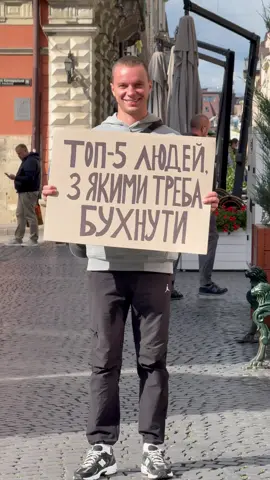 ТОП-5 ЛЮДЕЙ,
З ЯКИМИ ТРЕБА
БУХНУТИ